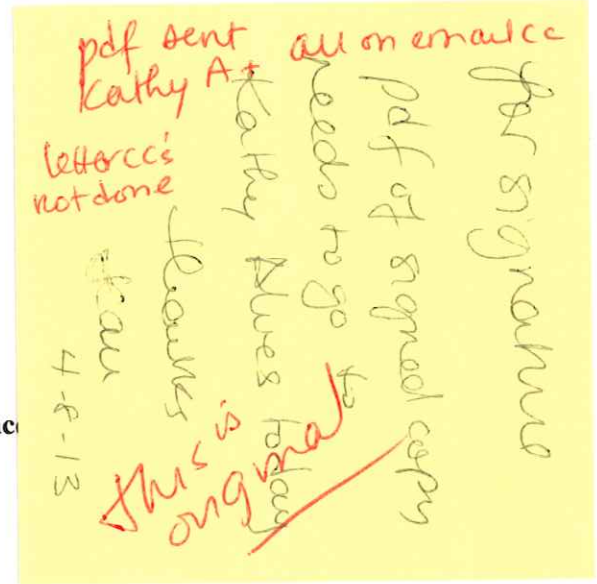 pdf sent all on email cc
Kathy A+
letter cc's
not done
for signature
pdf of signed copy
needs to go to
Kathy Alves today
Thanks
4-8-13
This is
original